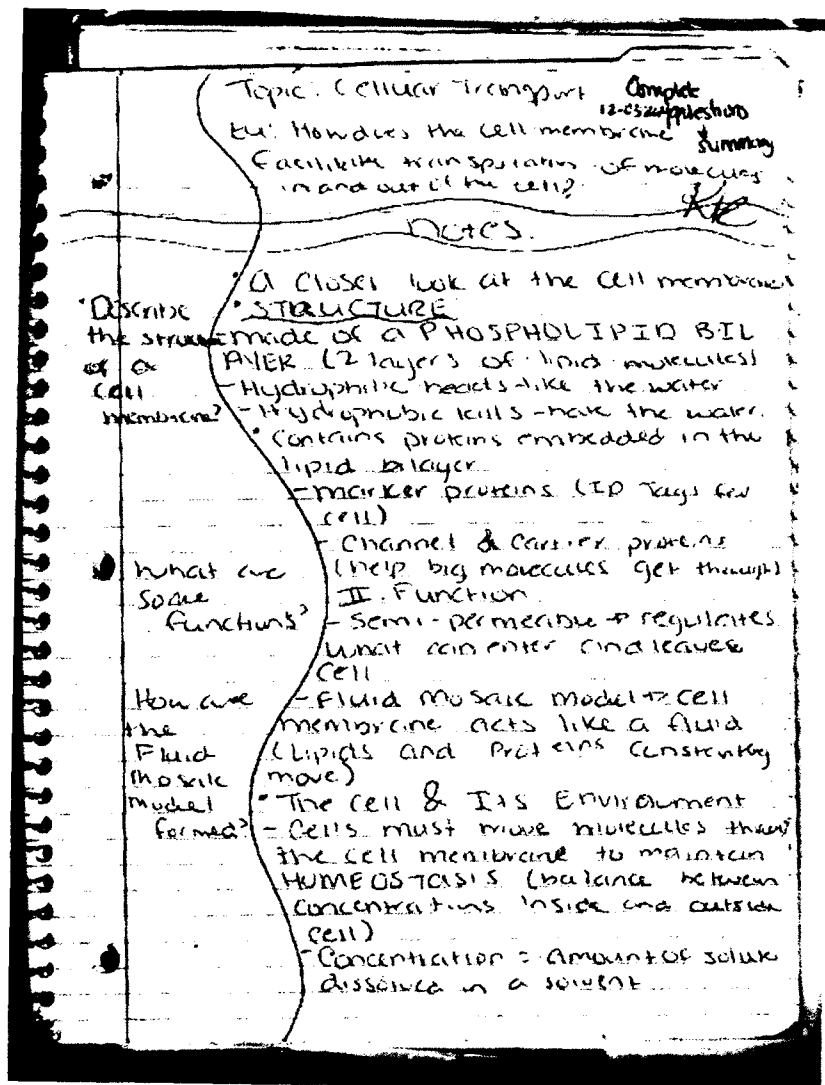 Topic: Cellular Transport
Complete
questions
&
summary
EU: How does the cell membrane
Facilitate transportation of molecules
in and out of the cell?
Notes.
• A closer look at the cell membrane
• STRUCTURE
• Describe
the structure
of a
cell
membrane?
- made of a PHOSPHOLIPID BIL
AYER (2 layers of lipid molecules)
- Hydrophilic heads - like the water
- Hydrophobic tails - hate the water.
• Contains proteins embedded in the
lipid bilayer
- marker proteins (ID Tags for
cell)
- Channel & Carrier proteins
(help big molecules get through)
What are
some
functions?
II. Function
- Semi-permeable → regulates
what can enter and leaves
cell
How are
the
Fluid
Mosaic
model
formed?
- Fluid Mosaic model → cell
membrane acts like a fluid
(Lipids and Proteins constantly
move)
• The cell & Its Environment
- Cells must move molecules through
the cell membrane to maintain
HOMEOSTASIS (balance between
concentrations inside and outside
cell)
- Concentration = Amount of solute
dissolved in a solvent